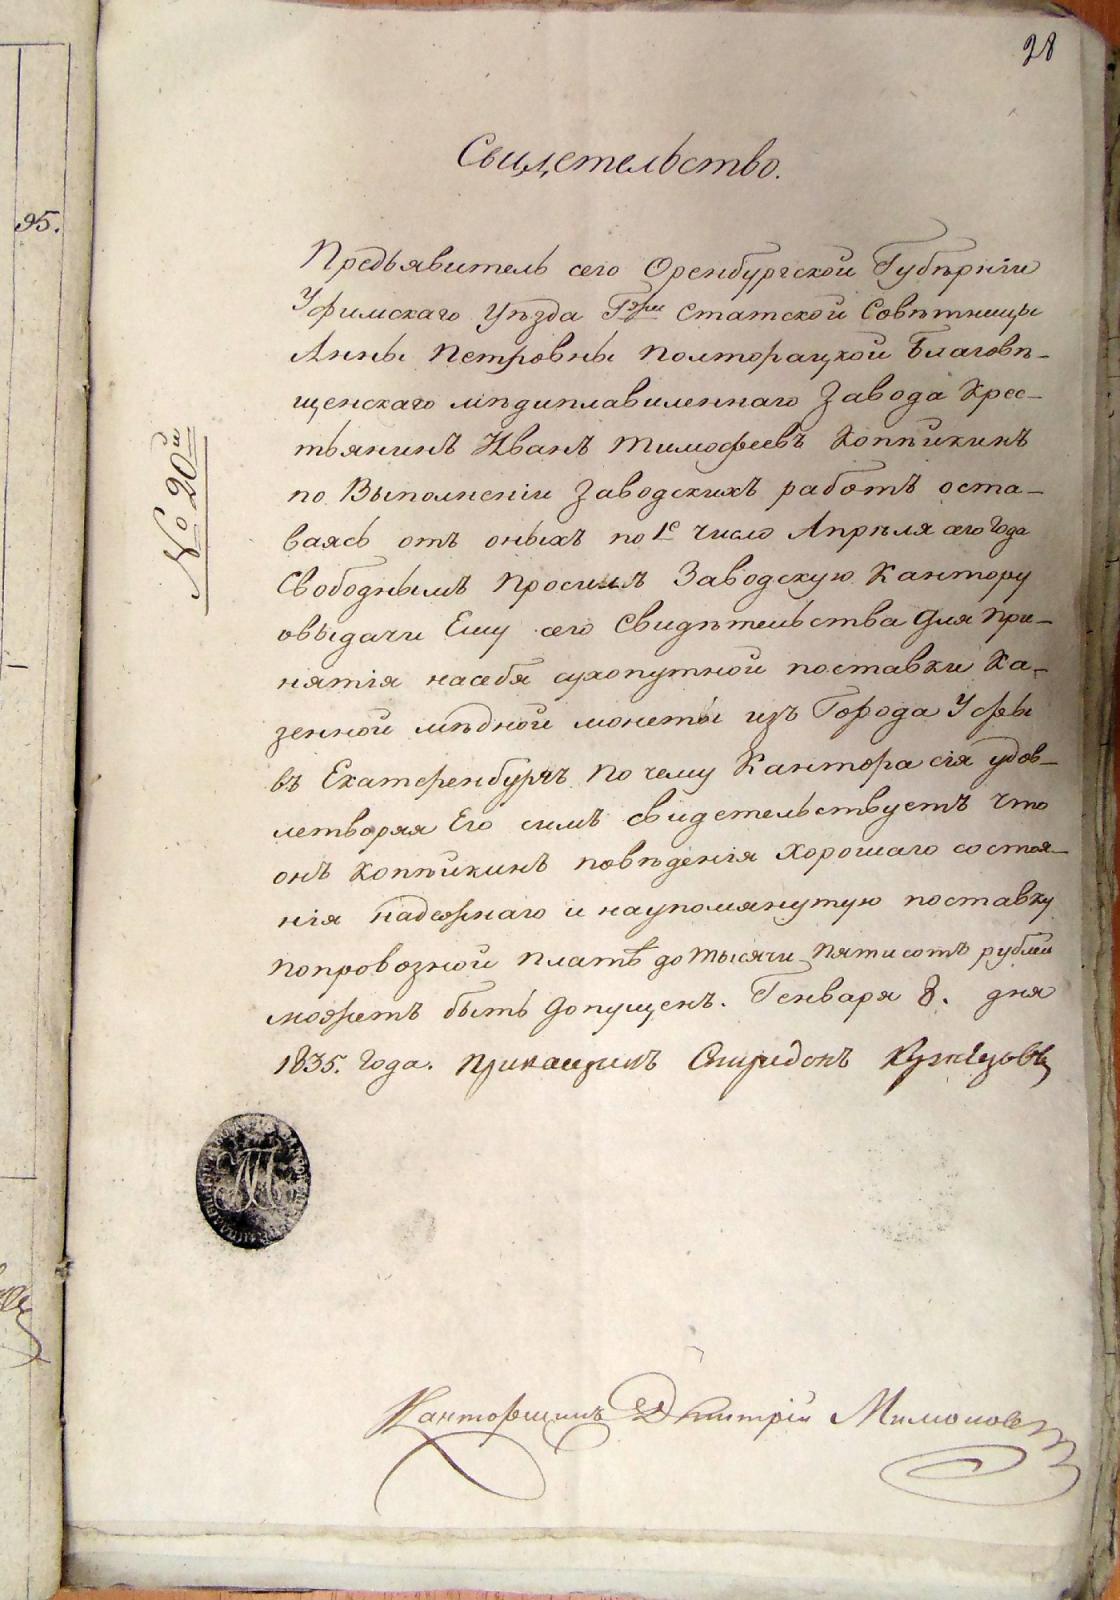 28
95.
Свидетельство.
№ 20й
Предъявитель сего Оренбургской Губѣрніи
Уфимскаго Уѣзда Гжи Статской Совѣтницы
Анны Петровны Полторацкой Благовѣ-
щенскаго мѣдиплавиленнаго Завода Крес-
тьянинъ Иванъ Тимофеевъ Копѣикинъ
по Выполненіи Заводскихъ работъ оста-
ваясь отъ оныхъ по 1е число Апрѣля сего Года
Свободнымъ просилъ Заводскую Кантору
овыдачи Ему сего Свидѣтельства для При-
нятія насебя сухопутной поставки Ка-
зенной мѣдной монеты изъ Города Уфы
въ Екатеренбургъ по чему Кантора сія удов-
летворяя Его симъ свидетельствуетъ что
онъ Копѣикинъ повѣденія хорошаго состоя-
нія надежнаго и наупомянутую поставку
попровозной платѣ до тысячи пяти сотъ рублей
можетъ быть допущенъ. Генваря 8. дня
1835. Года. Прикащикъ Спиридонъ Кузнецовъ
Канторщикъ Дмитрій